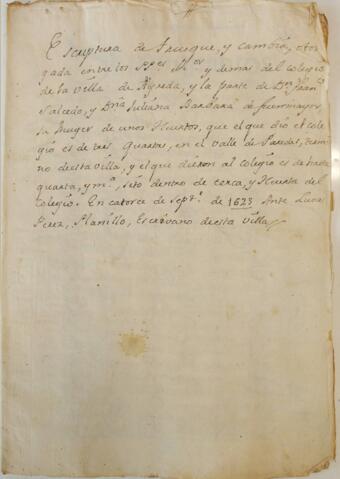 Escriptura de Trueque, y cambio, otor
gada entre los PPes. Ror y demas del colegio
de la villa de Agreda, y la parte de Dn. Fran.co
Salcedo, y Dña Juliana Barbara de fuenmayor
su muger de unos Huertos, que el que dio el cole
gio es de tres Quartas, en el valle de Paredes, termi
no desta villa, y el que dieron al colegio es de
quarta, y m.a, sito dentro de cerca, y Huerta del
colegio. En catorce de Sept.e de 1623 Ante Lucas
Perez, Planillo, Escrivano desta villa